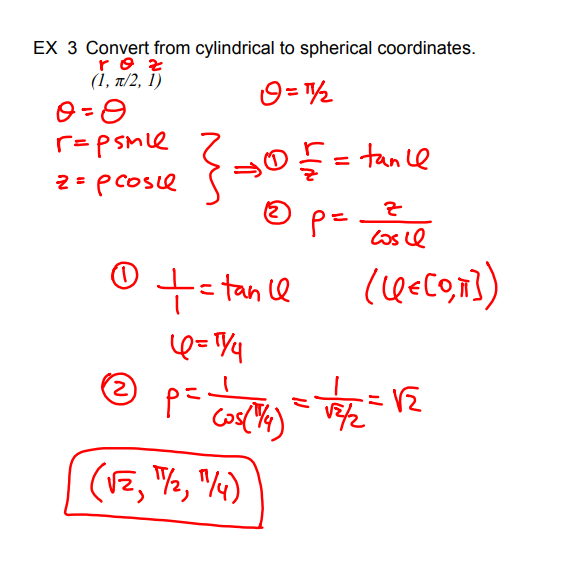 EX 3 Convert from cylindrical to spherical coordinates.
r θ z
(1, π/2, 1)
θ = π/2
θ = θ
r = ρ sin φ
z = ρ cos φ
} ⇒ ① r/z = tan φ
② ρ = z/cos φ
① 1/1 = tan φ (φ ∈ [0, π])
φ = π/4
② ρ = 1/cos(π/4) = 1/(√2/2) = √2
(√2, π/2, π/4)